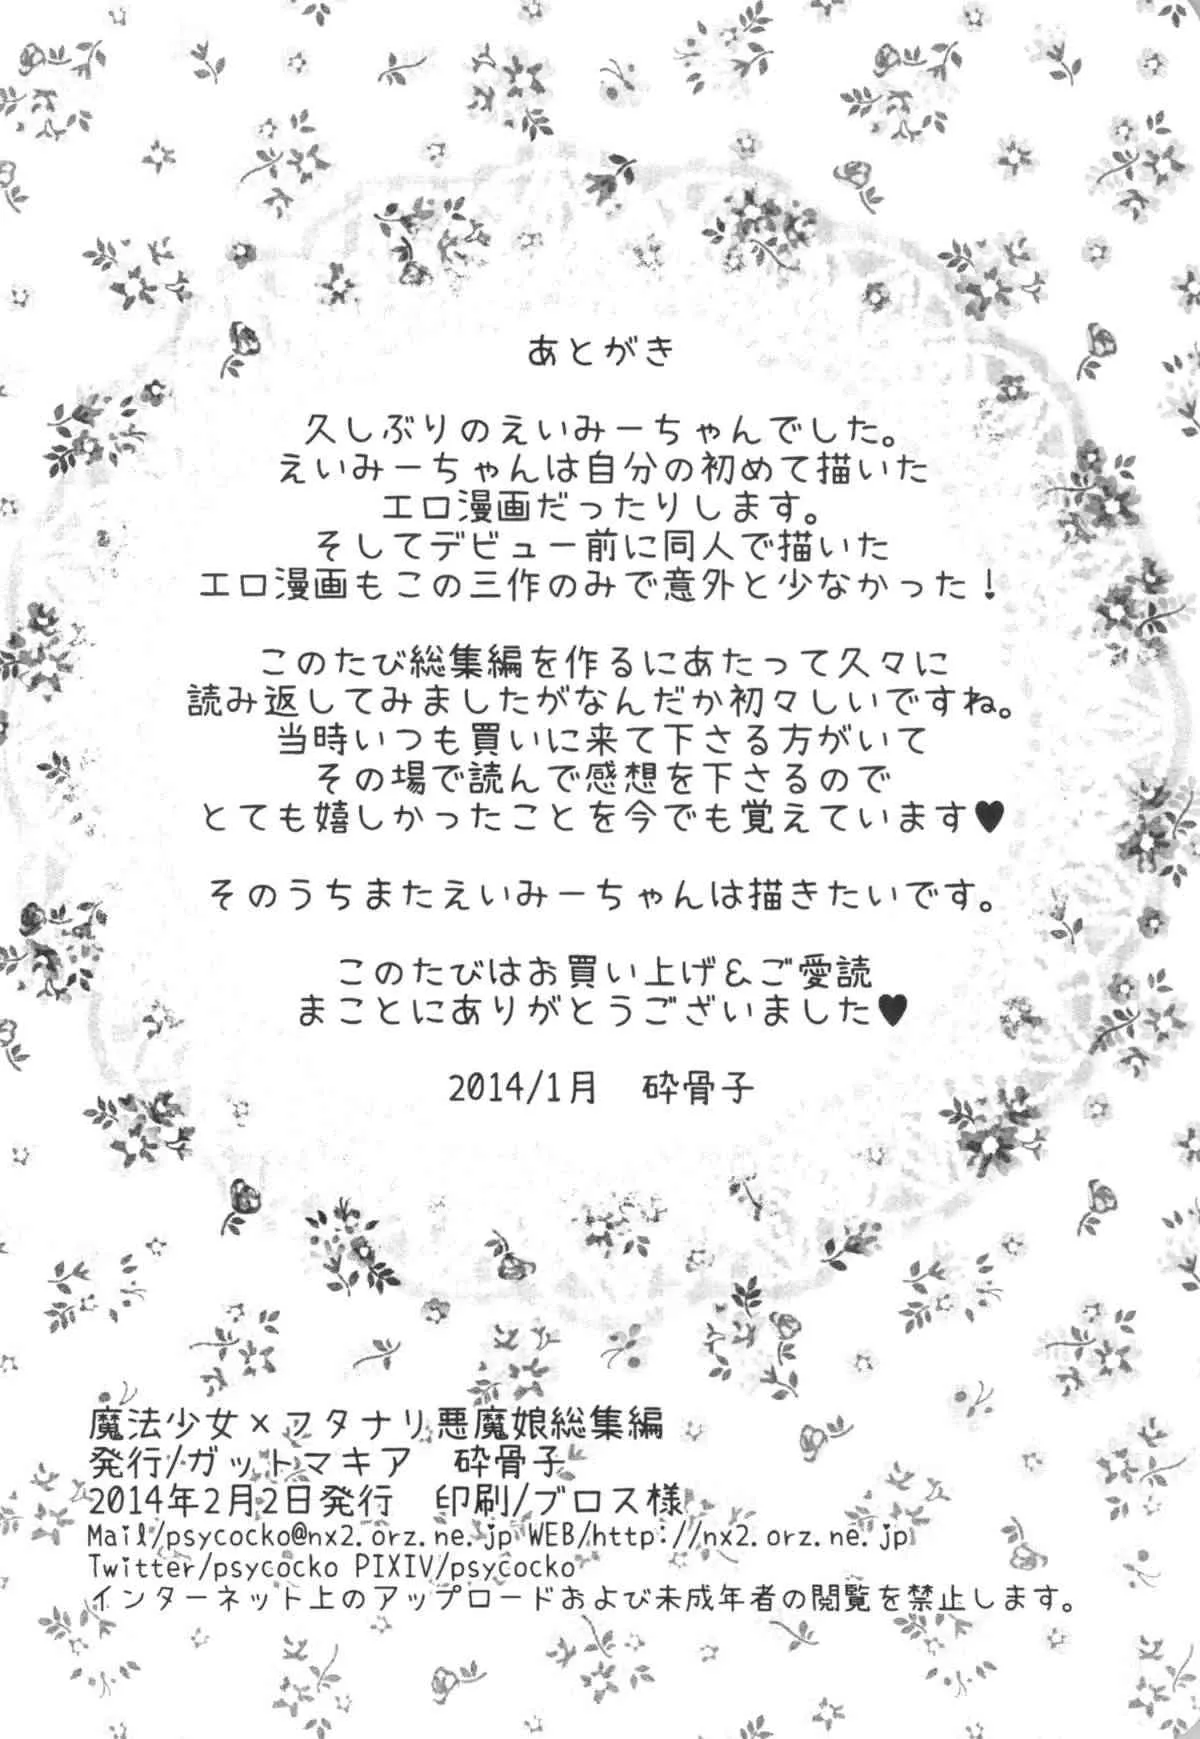 あとがき
久しぶりのえいみーちゃんでした。
えいみーちゃんは自分の初めて描いた
エロ漫画だったりします。
そしてデビュー前に同人で描いた
エロ漫画もこの三作のみで意外と少なかった！
このたび総集編を作るにあたって久々に
読み返してみましたがなんだか初々しいですね。
当時いつも買いに来て下さる方がいて
その場で読んで感想を下さるので
とても嬉しかったことを今でも覚えています♥
そのうちまたえいみーちゃんは描きたいです。
このたびはお買い上げ＆ご愛読
まことにありがとうございました♥
2014/1月　砕骨子
魔法少女×フタナリ悪魔娘総集編
発行/ガットマキア　砕骨子
2014年2月2日発行　印刷/ブロス様
Mail/psycocko@nx2.orz.ne.jp WEB/http://nx2.orz.ne.jp
Twitter/psycocko PIXIV/psycocko
インターネット上のアップロードおよび未成年者の閲覧を禁止します。